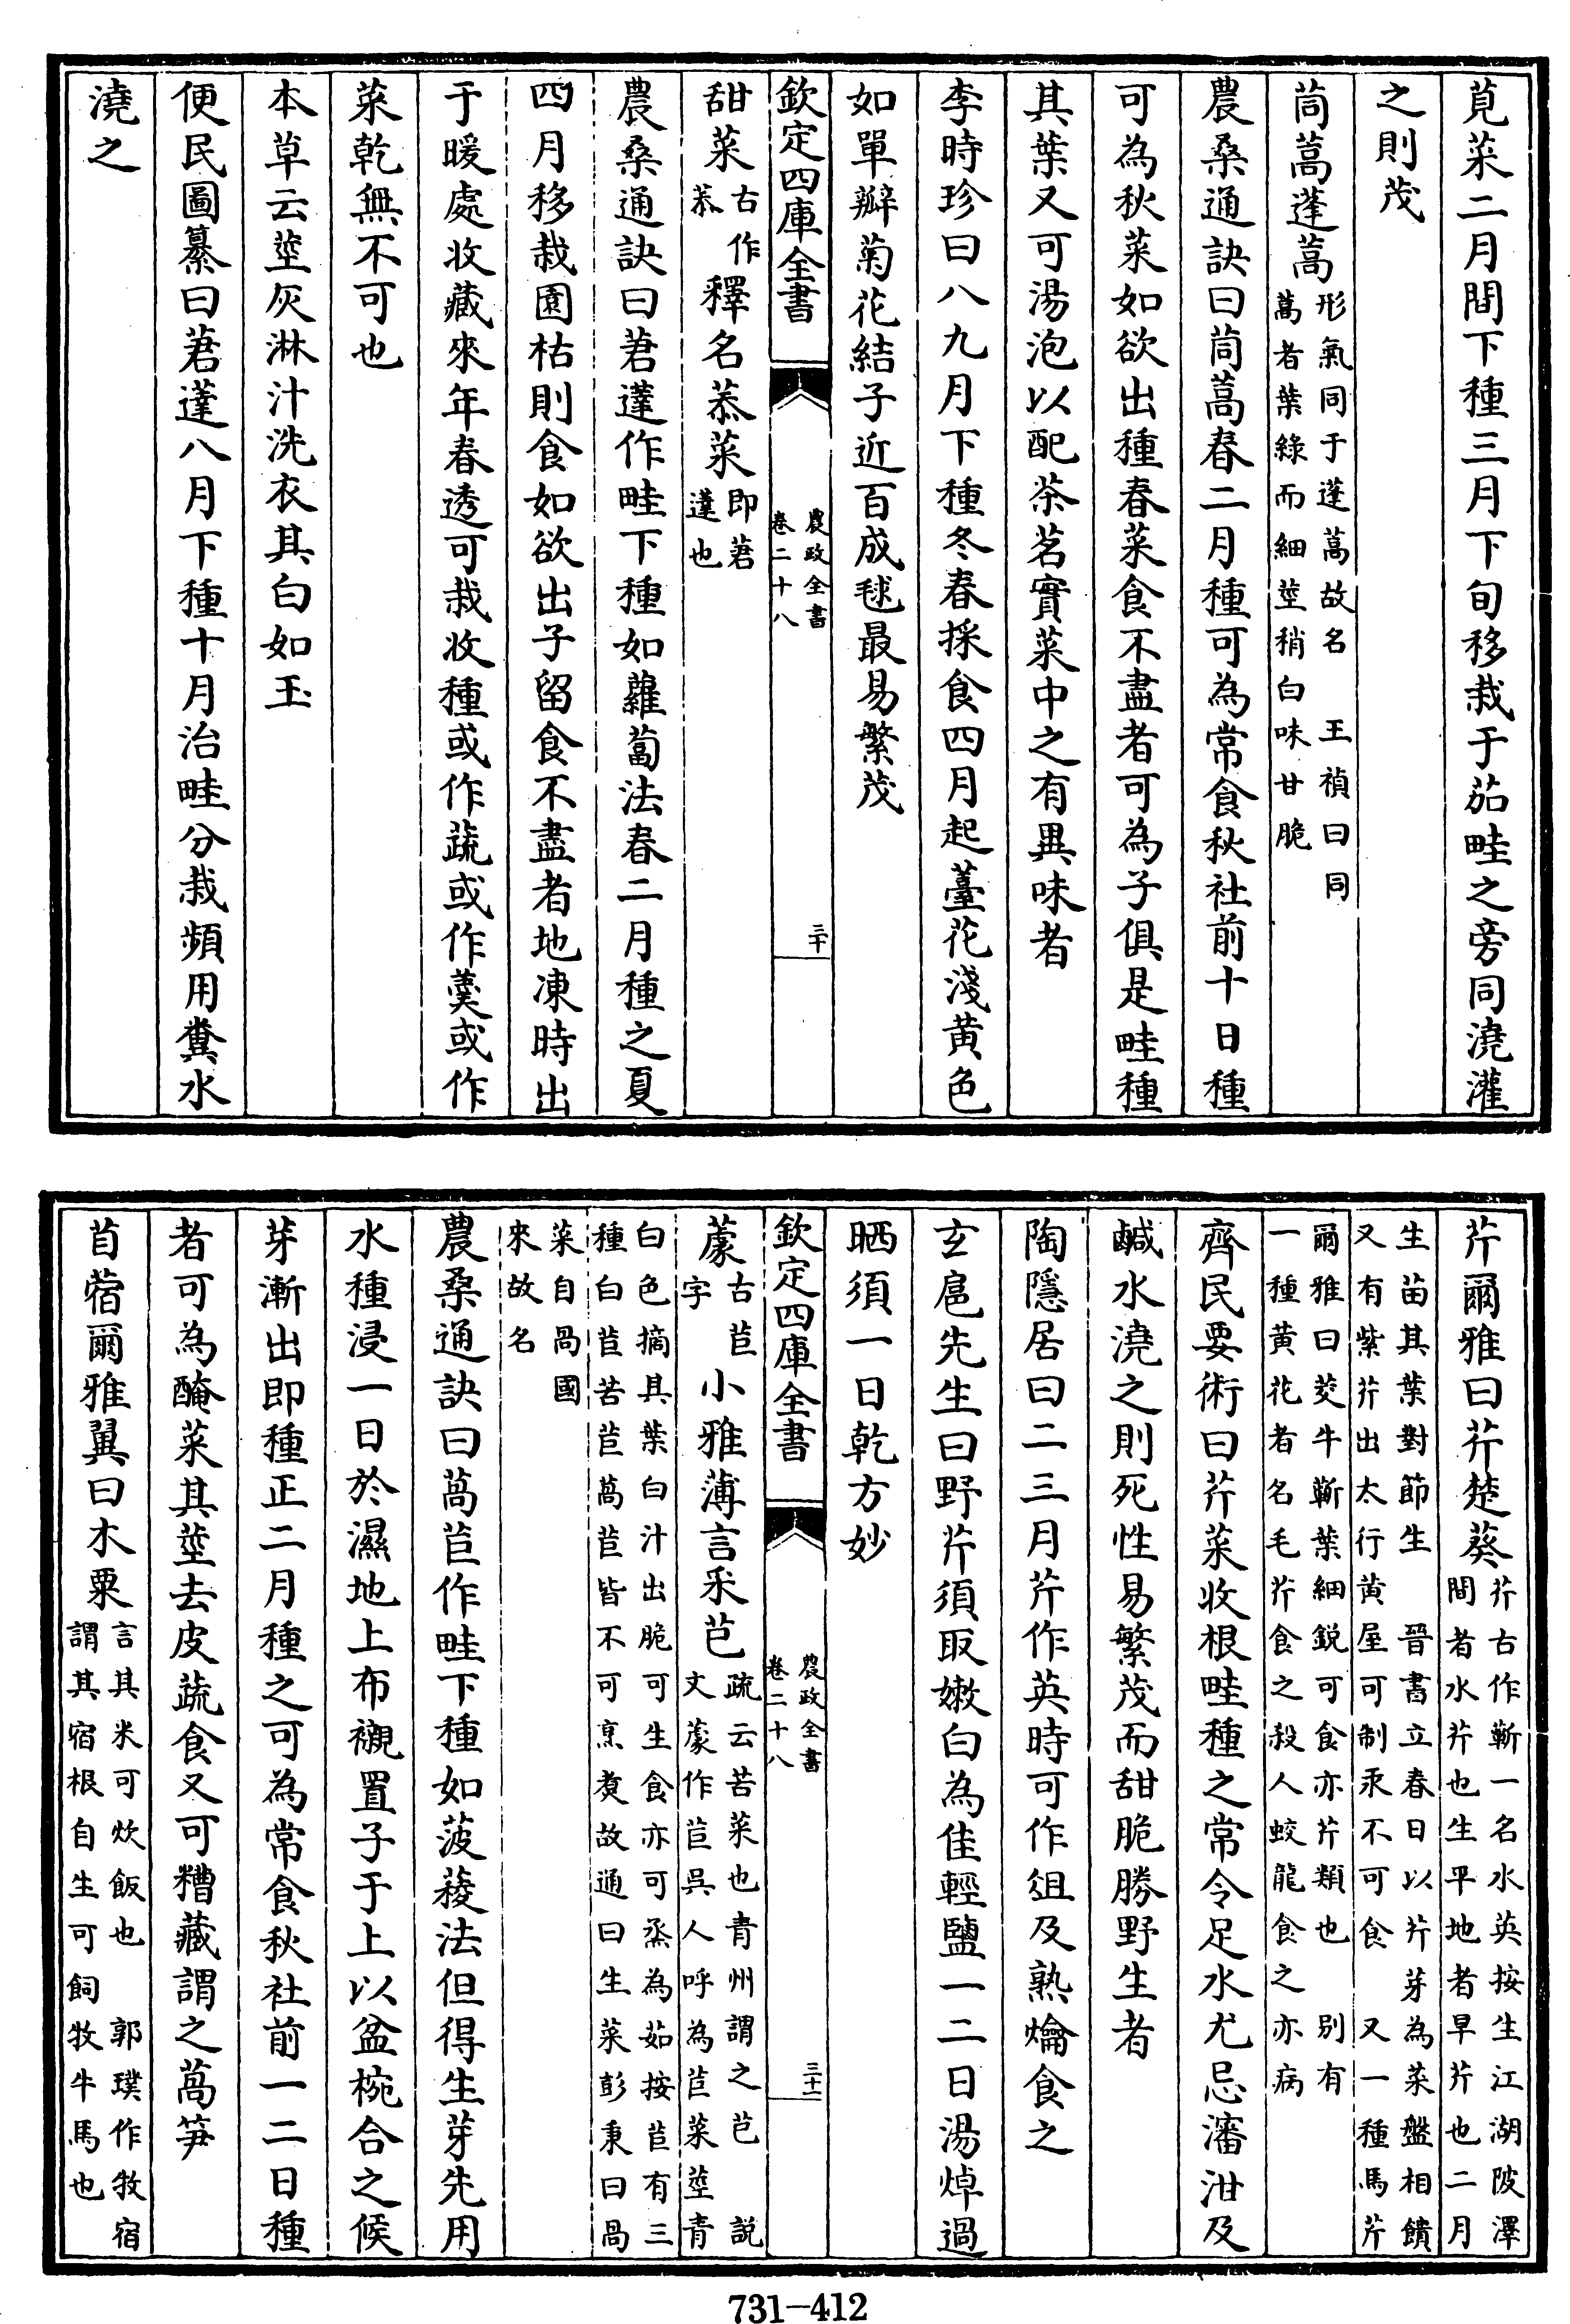 莧菜二月間下種三月下旬移栽于茄畦之旁同澆灌
之則茂
茼蒿蓬蒿形氣同于蓬蒿故名　王禎曰同
蒿者葉綠而細莖稍白味甘脆
農桑通訣曰茼蒿春二月種可為常食秋社前十日種
可為秋菜如欲出種春菜食不盡者可為子俱是畦種
其葉又可湯泡以配茶茗實菜中之有異味者
李時珍曰八九月下種冬春採食四月起薹花淺黃色
如單瓣菊花結子近百成毬最易繁茂
欽定四庫全書
農政全書
卷二十八
三十
甜菜古作
菾
釋名菾菜即莙
薘也
農桑通訣曰莙薘作畦下種如蘿蔔法春二月種之夏
四月移栽園枯則食如欲出子留食不盡者地凍時出
于暖處收藏來年春透可栽收種或作蔬或作羹或作
菜乾無不可也
本草云莖灰淋汁洗衣其白如玉
便民圖纂曰莙薘八月下種十月治畦分栽頻用糞水
澆之
芹爾雅曰芹楚葵芹古作蘄一名水英按生江湖陂澤
間者水芹也生平地者旱芹也二月
生苗其葉對節生　晉書立春日以芹芽為菜盤相饋
又有紫芹出太行黃屋可制汞不可食　又一種馬芹
爾雅曰茭牛蘄葉細銳可食亦芹類也　別有
一種黃花者名毛芹食之殺人蛟龍食之亦病
齊民要術曰芹菜收根畦種之常令足水尤忌瀋泔及
鹹水澆之則死性易繁茂而甜脆勝野生者
陶隱居曰二三月芹作英時可作俎及熟爚食之
玄扈先生曰野芹須取嫩白為佳輕鹽一二日湯焯過
晒須一日乾方妙
欽定四庫全書
農政全書
卷二十八
三十一
蘪古苣
字
小雅薄言采芑疏云苦菜也青州謂之芑　說
文蘪作苣吳人呼為苣菜莖青
白色摘其葉白汁出脆可生食亦可烝為茹按苣有三
種白苣苦苣萵苣皆不可烹煑故通曰生菜彭秉曰咼
菜自咼國
來故名
農桑通訣曰萵苣作畦下種如菠薐法但得生芽先用
水種浸一日於濕地上布襯置子于上以盆椀合之候
芽漸出即種正二月種之可為常食秋社前一二日種
者可為醃菜其莖去皮蔬食又可糟藏謂之萵笋
苜蓿爾雅翼曰木粟言其米可炊飯也　郭璞作牧宿
謂其宿根自生可飼牧牛馬也
731—412